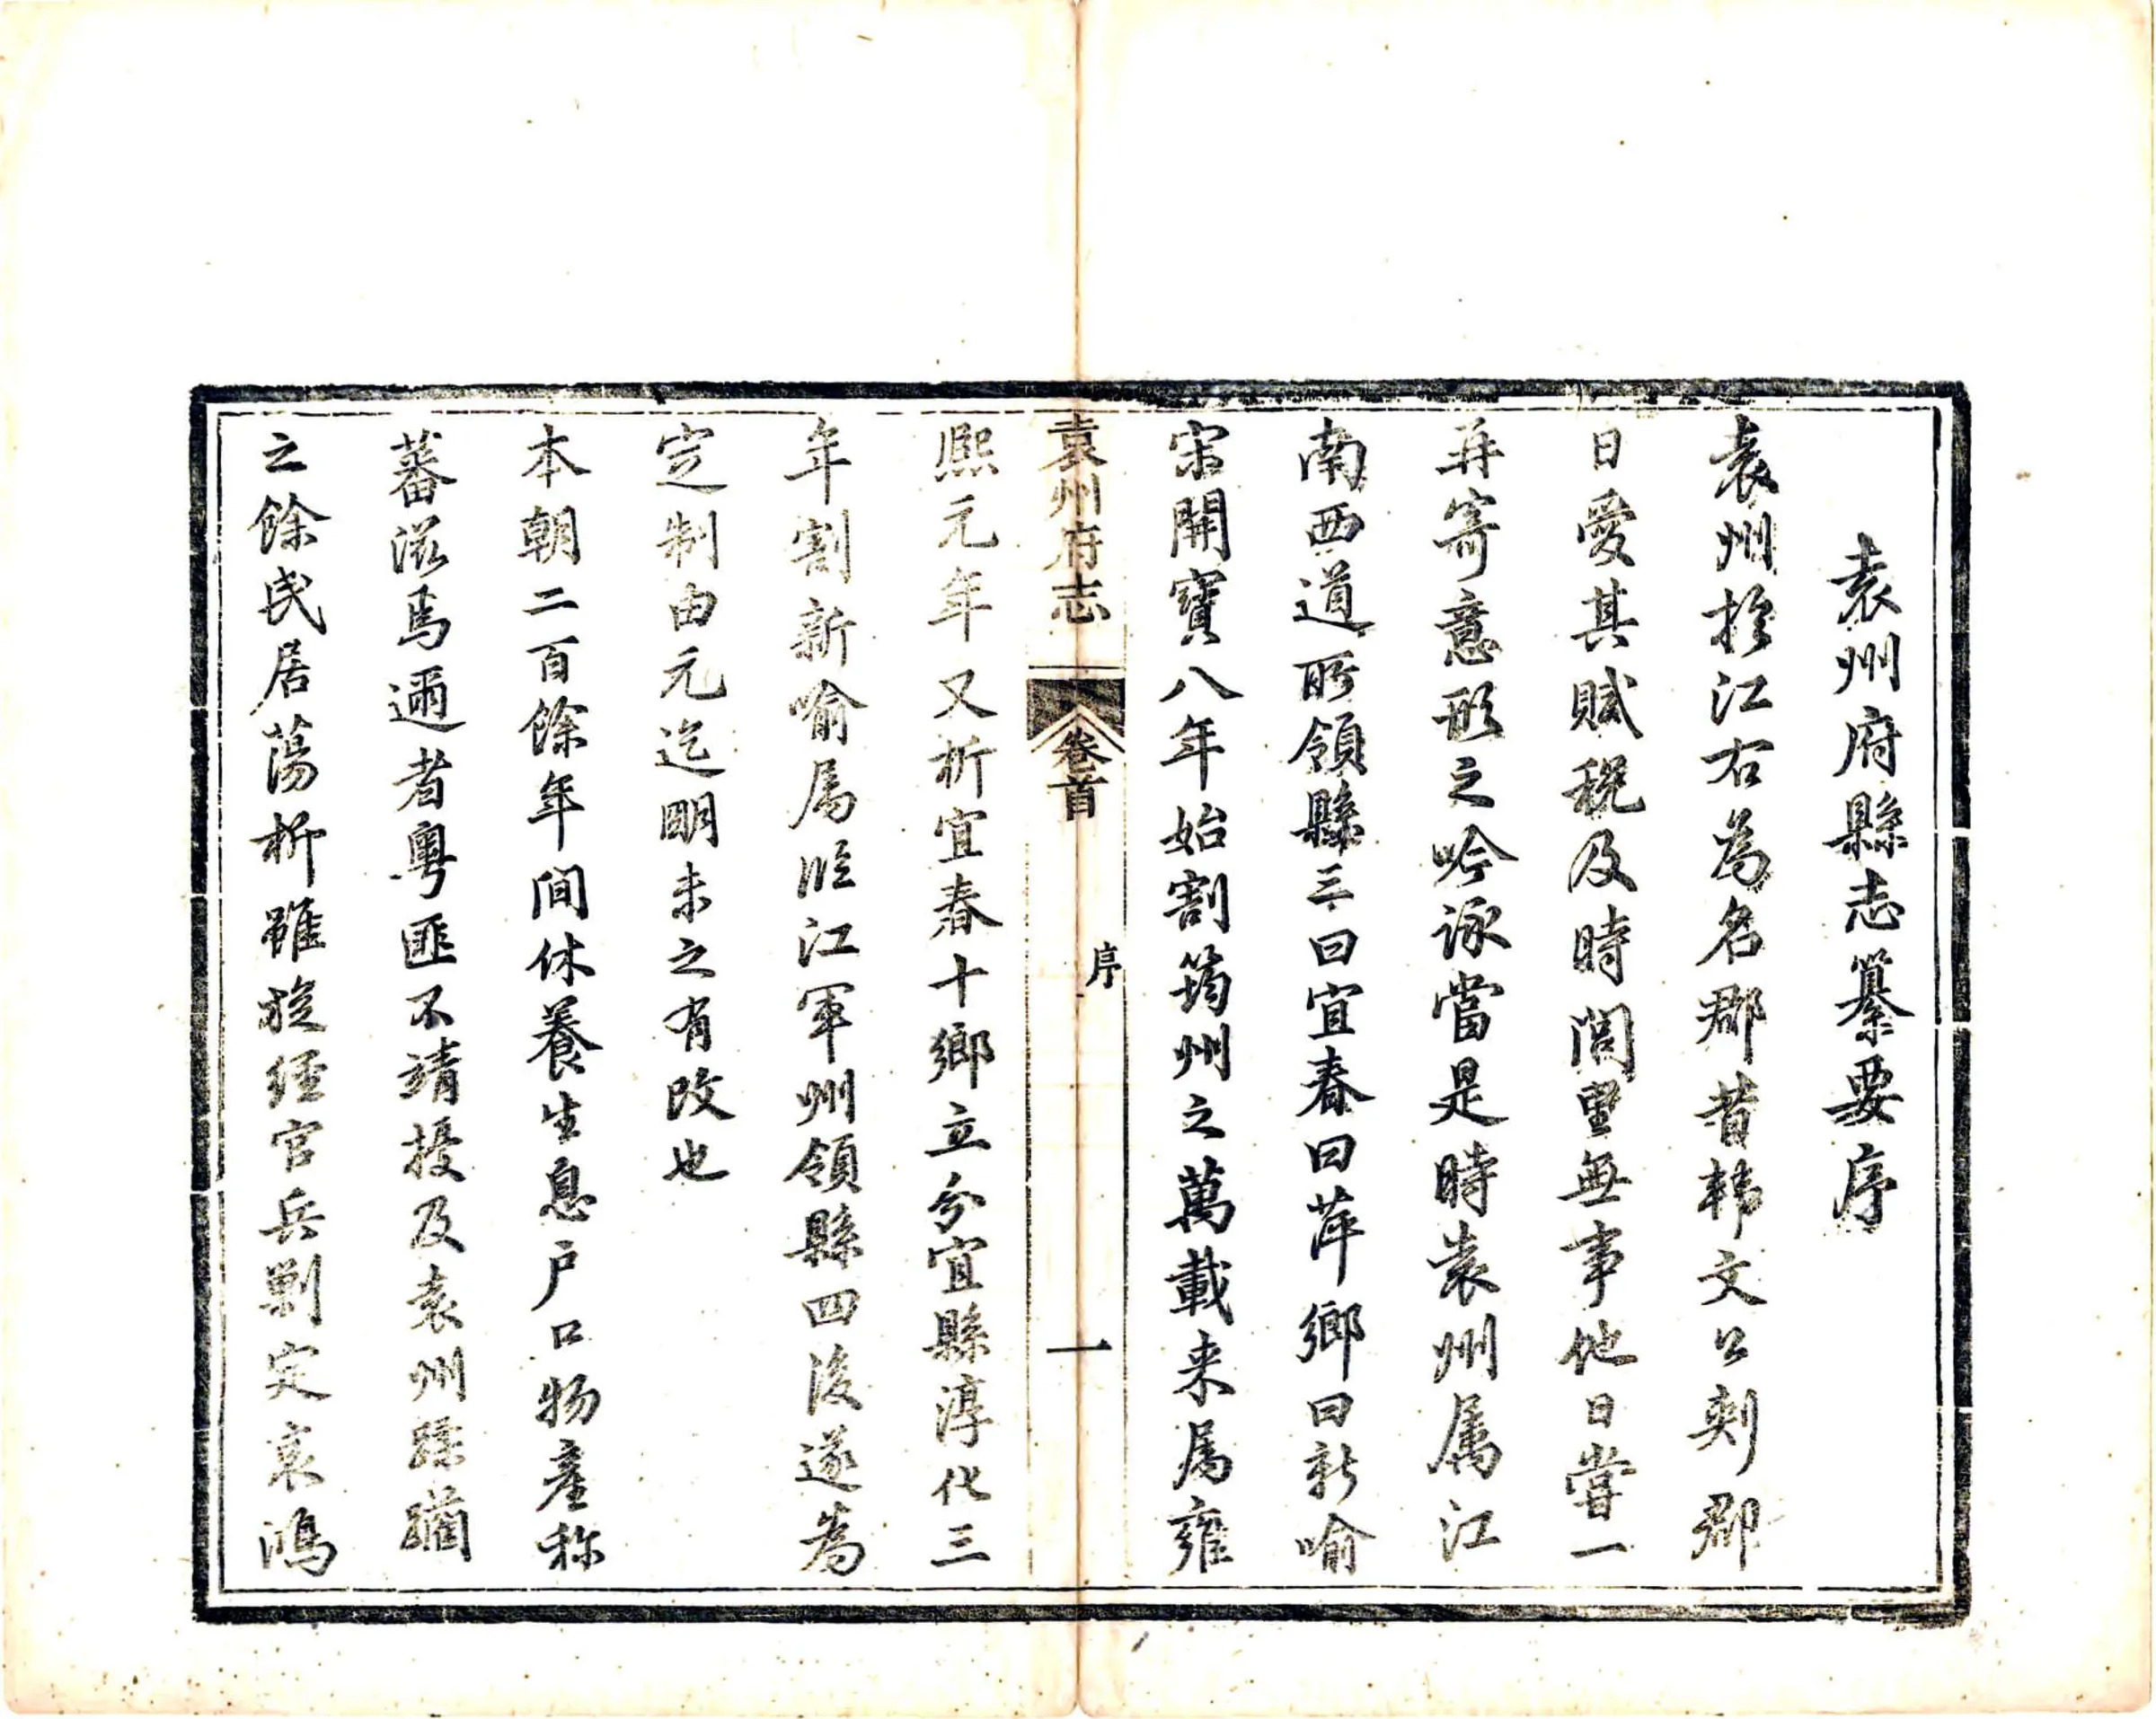 袁州府縣志纂要序
袁州於江右為名郡昔韩文公刺郡
日愛其賦稅及時閭里無事他日嘗一
再寄意形之吟詠當是時袁州属江
南西道所領縣三曰宜春曰萍鄉曰新喻
宋開寶八年始割筠州之萬載来属雍
袁州府志
卷首
序
一
熙元年又析宜春十鄉立分宜縣淳化三
年割新喻属臨江軍州領縣四後遂為
定制由元迄明未之有改也
本朝二百餘年間休養生息戶口物產称
蕃滋焉邇者粤匪不靖擾及袁州蹂躪
之餘民居蕩析雖旋经官兵剿定哀鴻